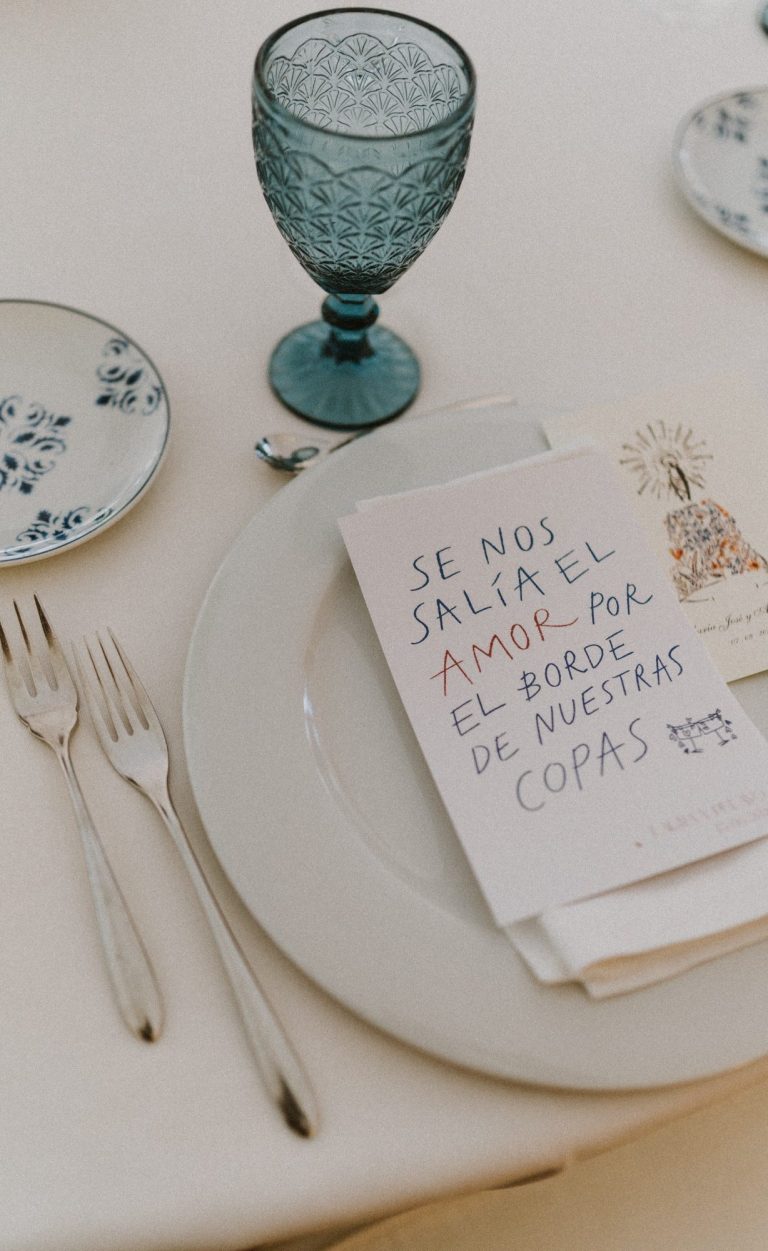 SE NOS
SALÍA EL
AMOR POR
EL BORDE
DE NUESTRAS
COPAS
José y